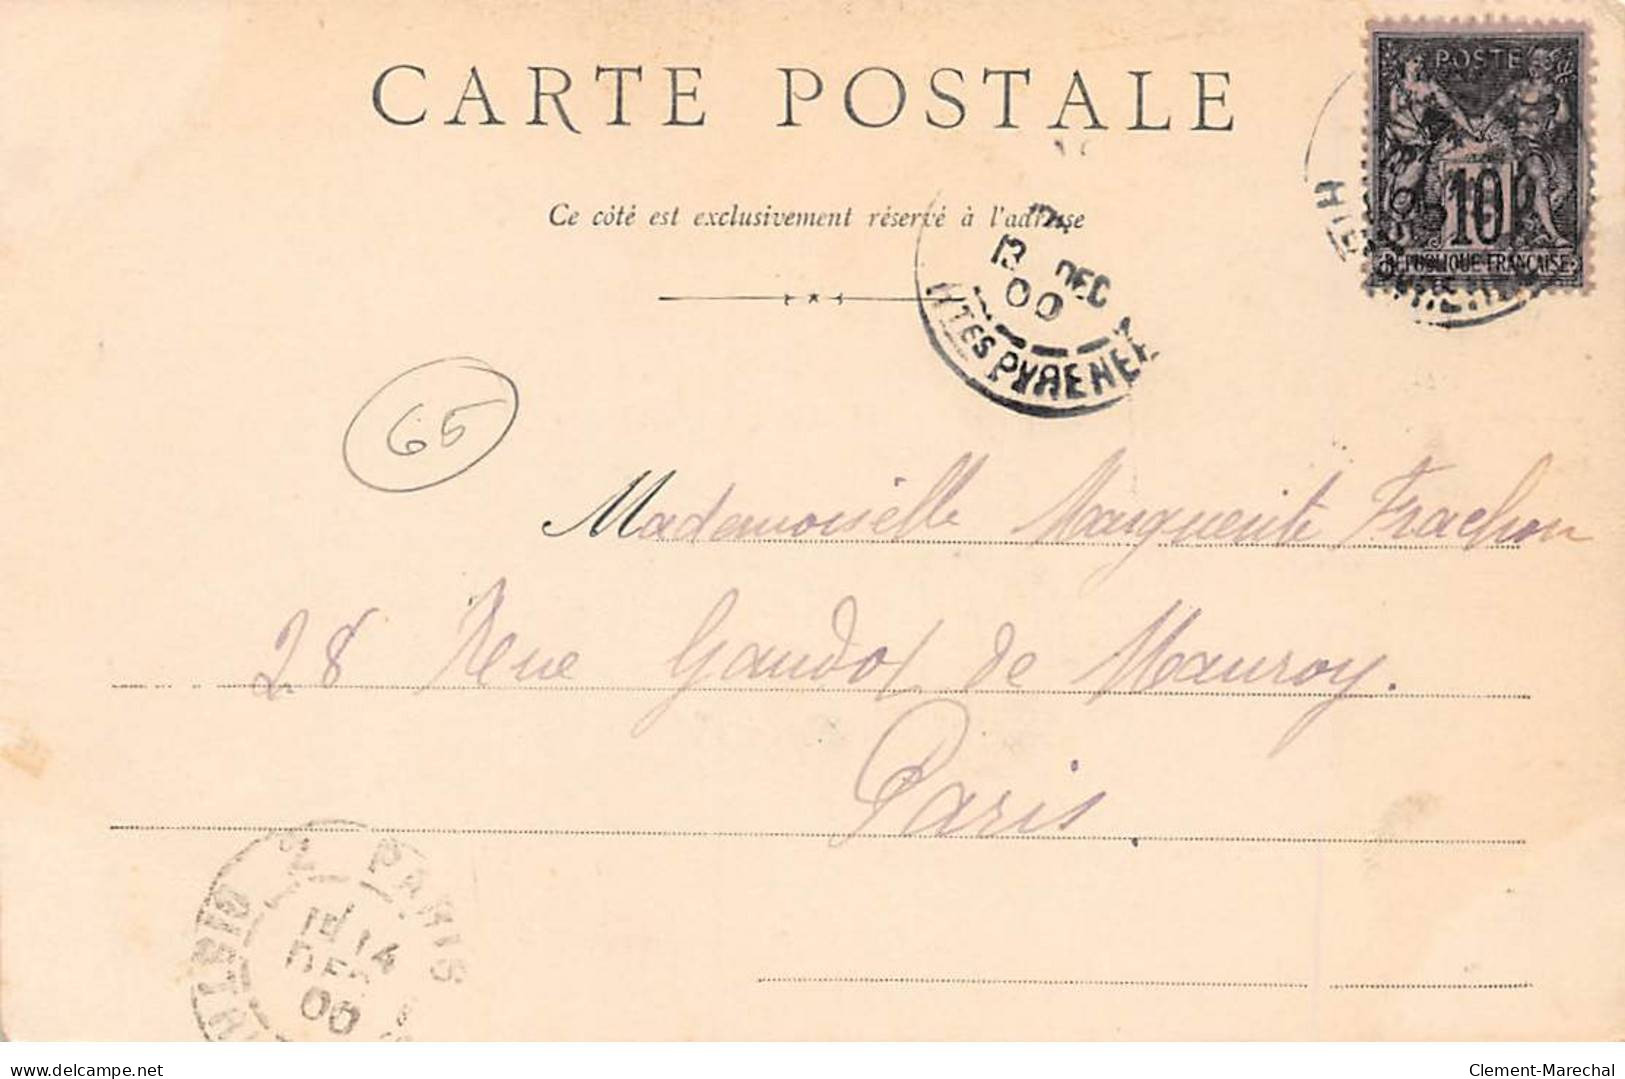 CARTE POSTALE
Ce côté est exclusivement réservé à l'adresse
POSTES
10
RÉPUBLIQUE FRANÇAISE
13 DEC
00
HTES PYRENEES
65
Mademoiselle Marguerite Frachon
28 Rue Gaudot de Mauroy.
Paris.
PARIS
14
DEC
00
delcampe.net
Clement-Marechal